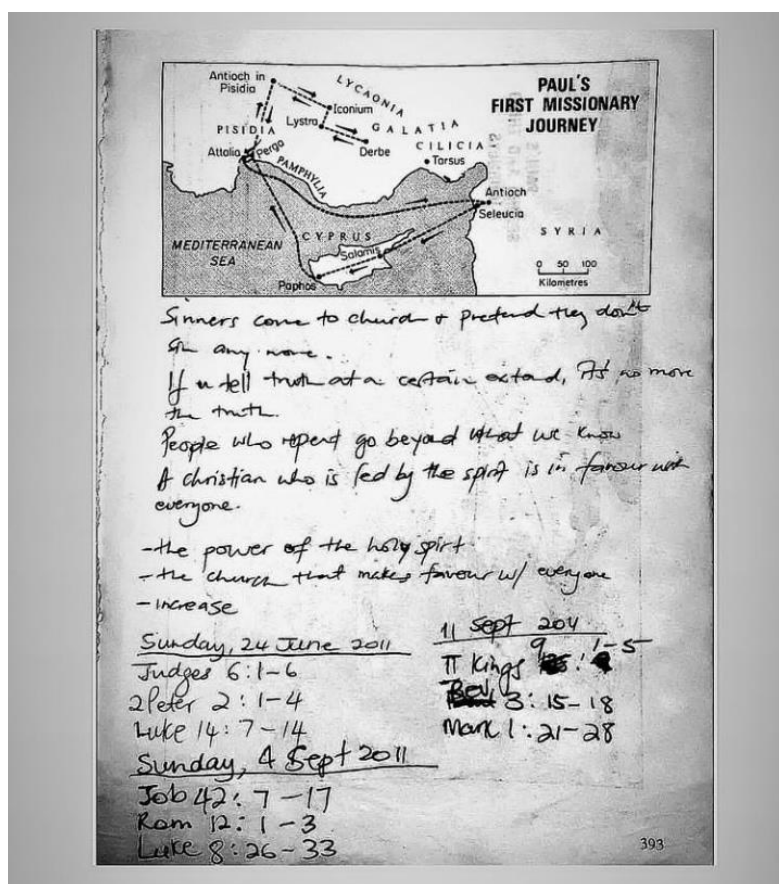 PAUL'S
FIRST MISSIONARY
JOURNEY
Antioch in
Pisidia
LYCAONIA
Iconium
Lystra
GALATIA
PISIDIA
Derbe
CILICIA
Tarsus
Attalia
Perga
PAMPHYLIA
Antioch
Seleucia
SYRIA
CYPRUS
Salamis
MEDITERRANEAN
SEA
Paphos
0 50 100
Kilometres
Sinners come to church & pretend they don't
sin any more.
If u tell truth at a certain extand, it's no more
the truth.
People who repent go beyond what we know
A christian who is led by the spirit is in favour with
everyone.
-the power of the holy spirt
-the church that makes favour w/ everyone
-increase
Sunday, 24 June 2011
Judges 6:1-6
2Peter 2:1-4
Luke 14:7-14
Sunday, 4 Sept 2011
Job 42:7-17
Rom 12:1-3
Luke 8:26-33
11 Sept 2011
II Kings 9:1-5
Rev 3:15-18
Mark 1:21-28
393